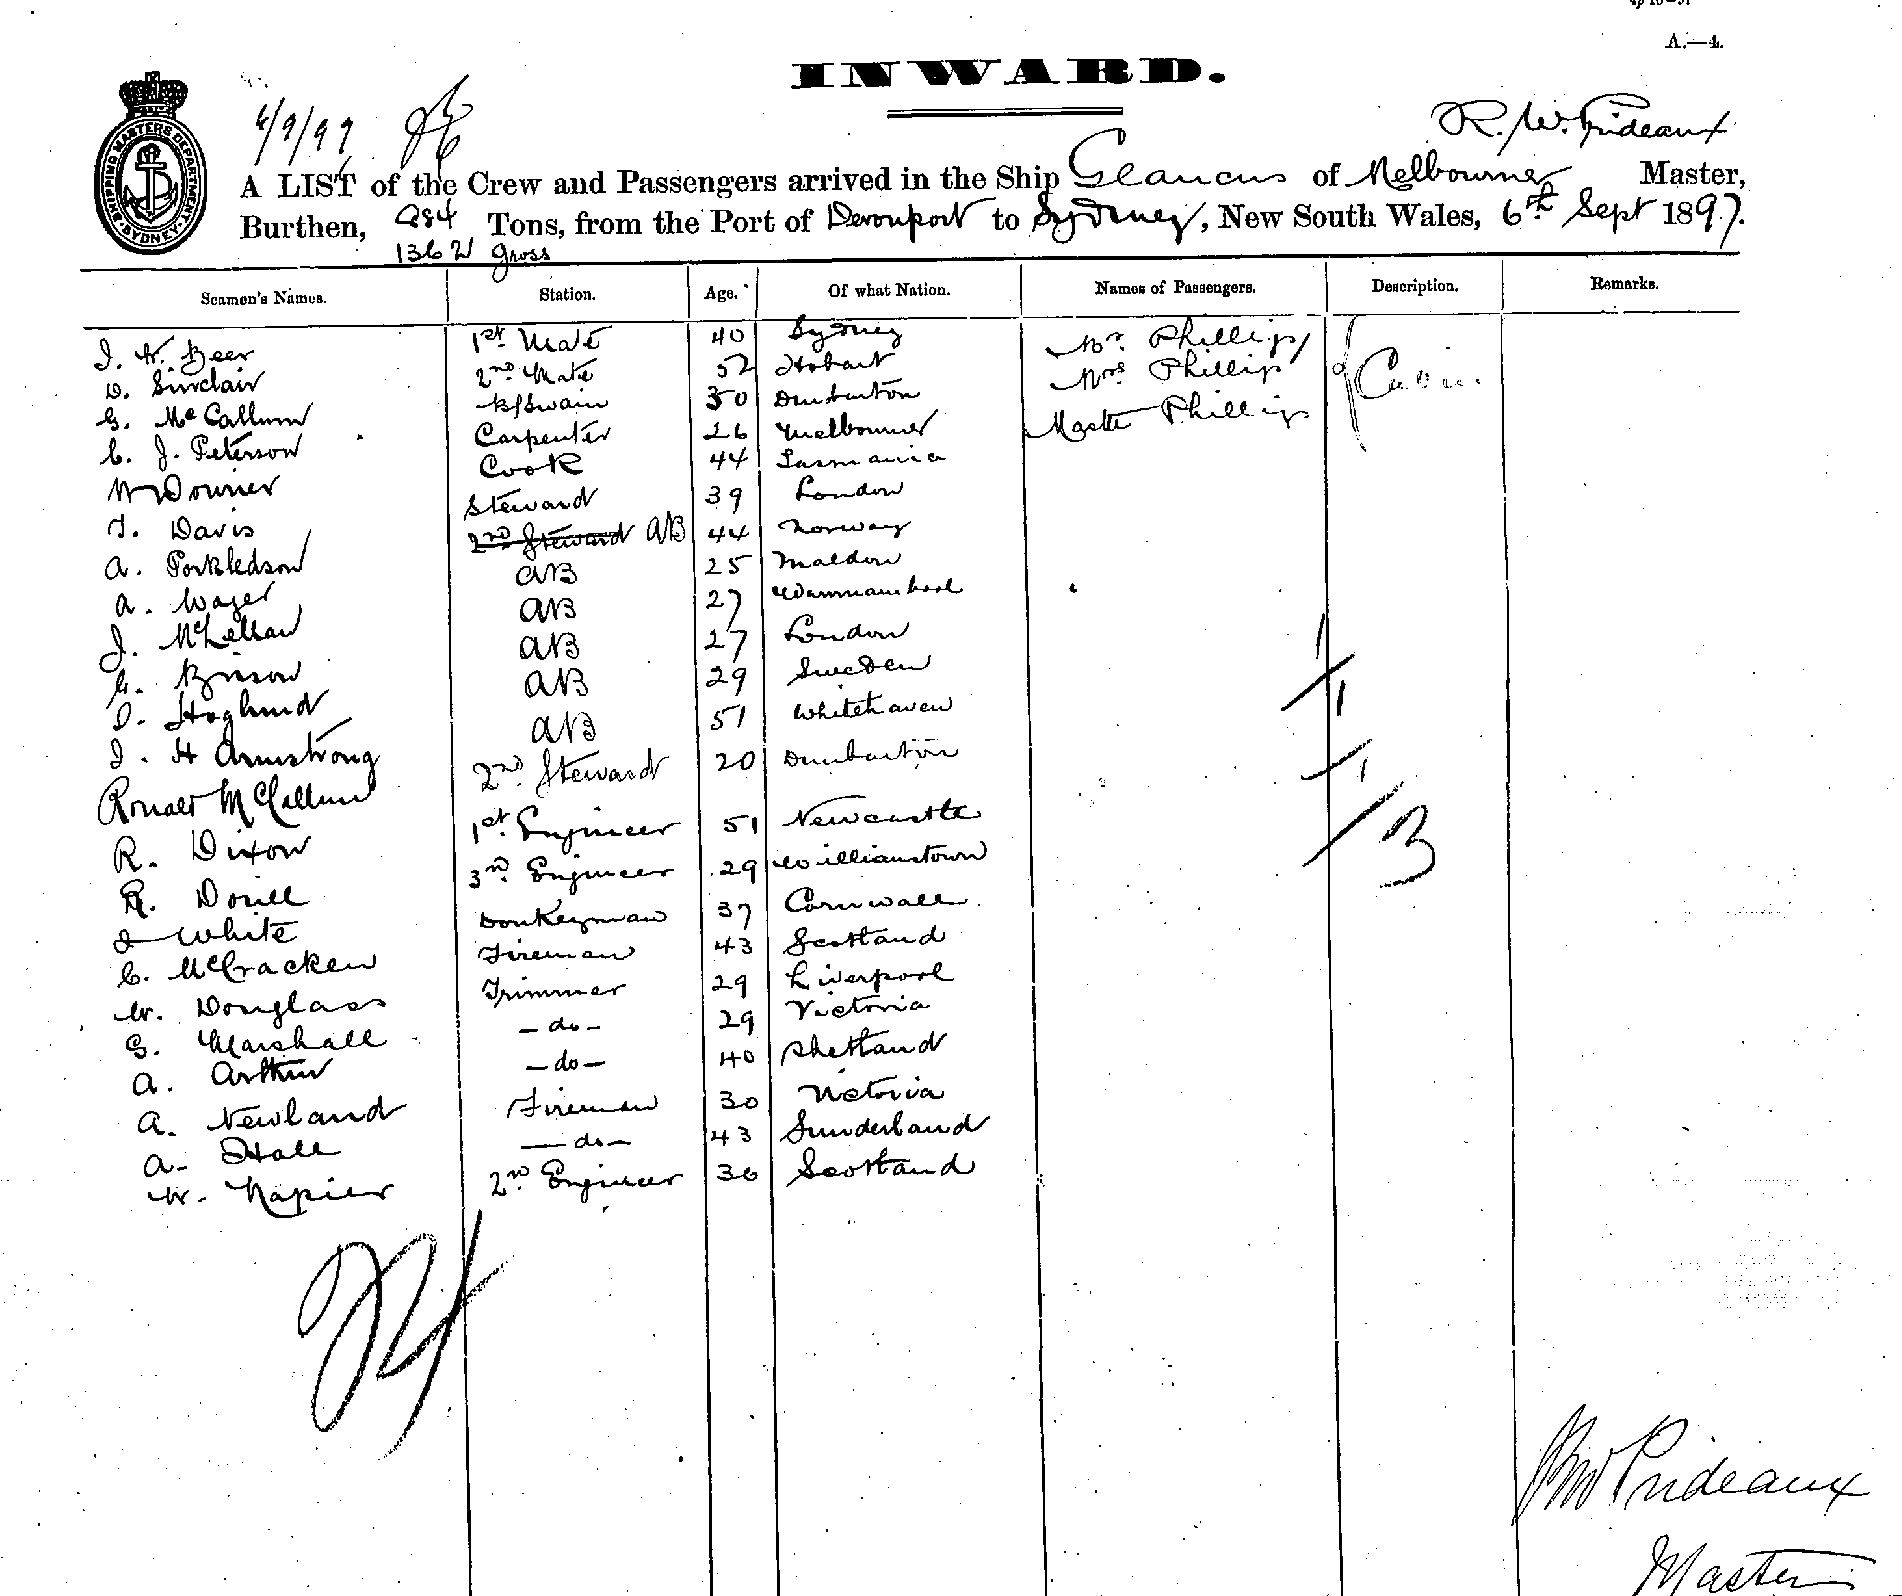 A.—4.
INWARD.
SHIPPING MASTERS DEPARTMENT SYDNEY
6/9/97
R. W. Prideaux
A LIST of the Crew and Passengers arrived in the Ship Glaucus of Melbourne Master,
Burthen, 984 Tons, from the Port of Devonport to Sydney, New South Wales, 6th Sept 1897.
1362 gross
Seamen's Names. Station. Age. Of what Nation. Names of Passengers. Description. Remarks.
J. W. Beer 1st Mate 40 Sydney Mr. Phillips Cabin
D. Sinclair 2nd Mate 52 Hobart Mrs Phillips
G. McCallum B/Swain 30 Dumbarton Master Phillips
C. J. Peterson Carpenter 26 Melbourne
W Downer Cook 44 Tasmania
T. Davis Steward 39 London
A. 2nd Steward AB 44 Norway
A. Wager AB 25 Maldon
J. McLellan AB 27 Warrnambool
AB 27 London
O. Hoglund AB 29 Sweden
J. H Armstrong AB 51 Whitehaven
Ronald McCallum 2nd Steward 20 Dumbarton
R. Dixon 1st Engineer 51 Newcastle
R. 3rd Engineer 29 Williamstown
J White Donkeyman 37 Cornwall.
C. McCracken Fireman 43 Scotland
W. Douglass Trimmer 29 Liverpool
G. Marshall —do— 29 Victoria
A. Arthur —do— 40 Shetland
A. Newland Fireman 30 Victoria
A. Hall —do— 43 Sunderland
W. Napier 2nd Engineer 36 Scotland
1
1
1
3
24
RW Prideaux
Master